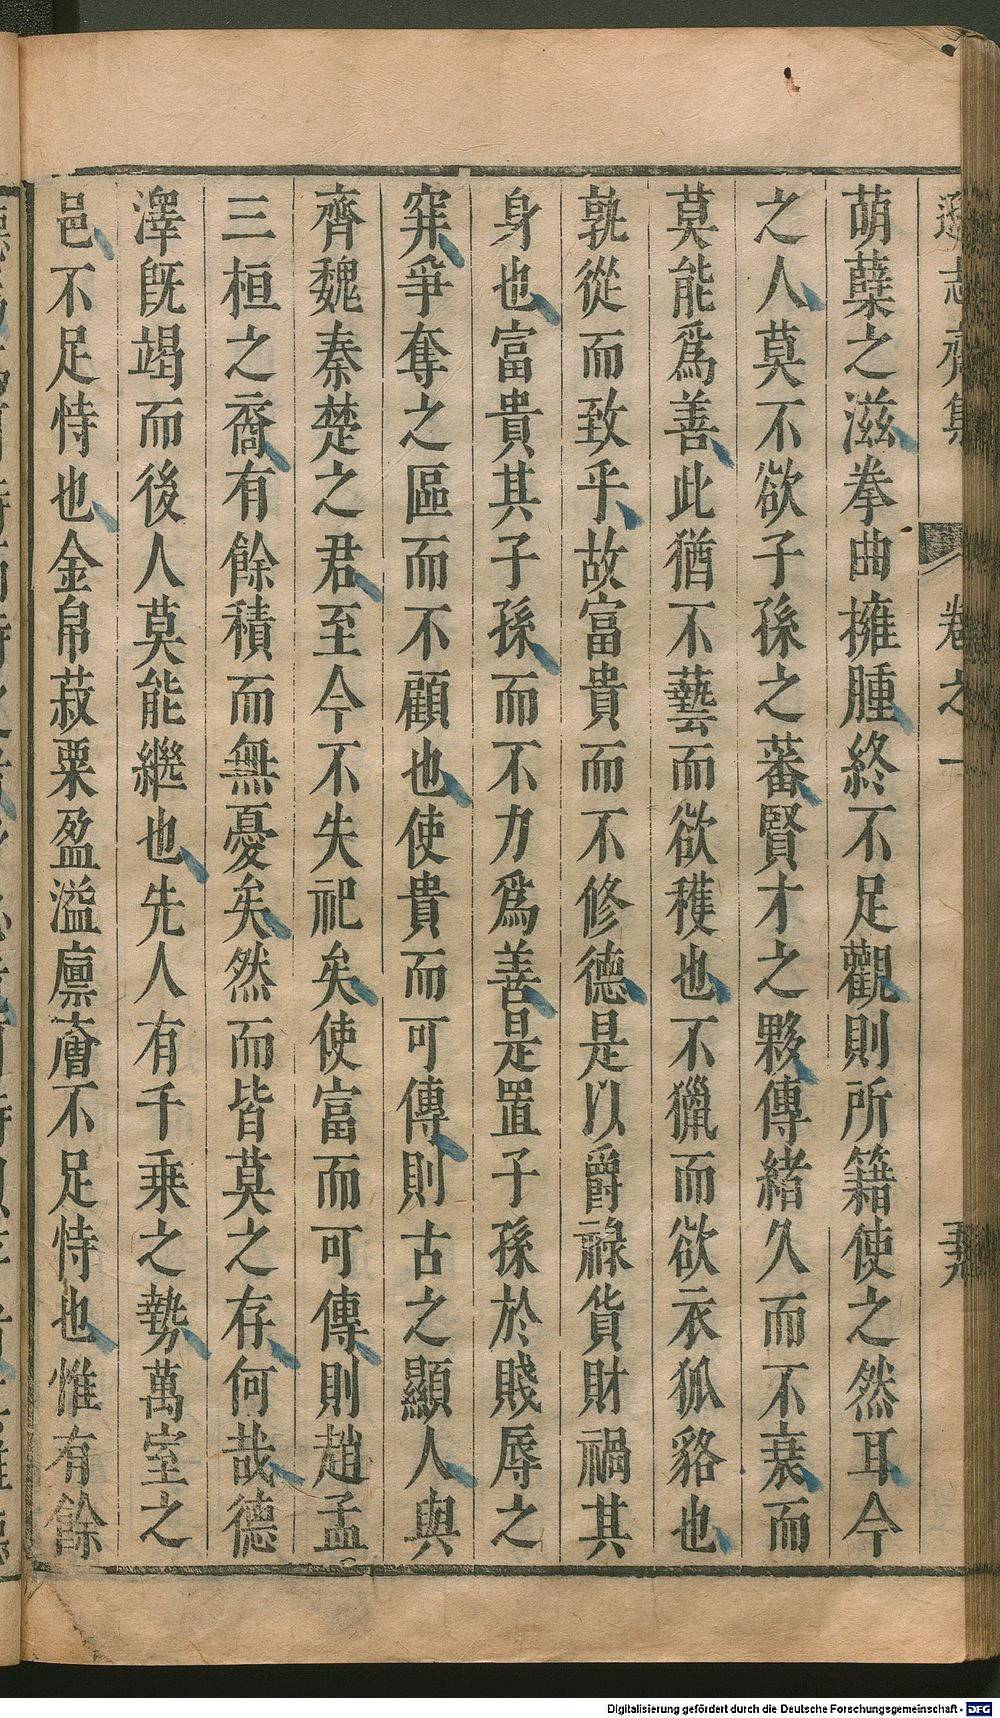 遜志齋集
卷之一
萌蘖之滋拳曲擁腫終不足觀則所籍使之然耳今
之人莫不欲子孫之蕃賢才之夥傳緒久而不衰而
莫能爲善此猶不藝而欲穫也不獵而欲衣狐貉也
孰從而致乎故富貴而不修德是以爵祿貨財禍其
身也富貴其子孫而不力爲善是置子孫於賤辱之
穽爭奪之區而不顧也使貴而可傳則古之顯人與
齊魏秦楚之君至今不失祀矣使富而可傳則趙孟
三桓之裔有餘積而無憂矣然而皆莫之存何哉德
澤既竭而後人莫能繼也先人有千乘之勢萬室之
邑不足恃也金帛菽粟盈溢廪廥不足恃也惟有餘
Digitalisierung gefördert durch die Deutsche Forschungsgemeinschaft - DFG